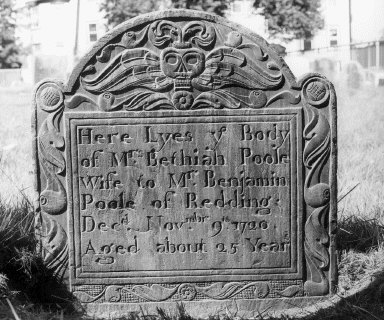 Here Lyes yf Body
of Mrs Bethiah Poole
Wife to Mr Benjamin
Poole of Redding
Decd Novmbr 9th 1720
Aged about 25 Year